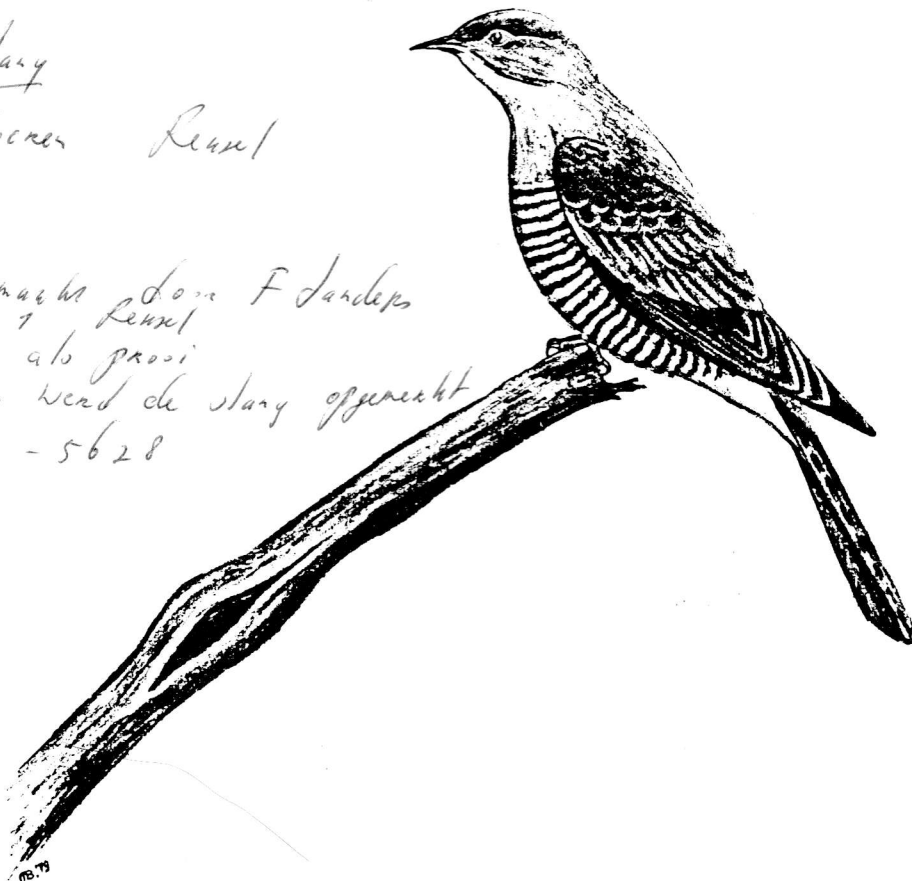 slang
Reusel
door F Sanders
Reusel
als prooi
werd de slang opgemerkt
- 5628
B.79